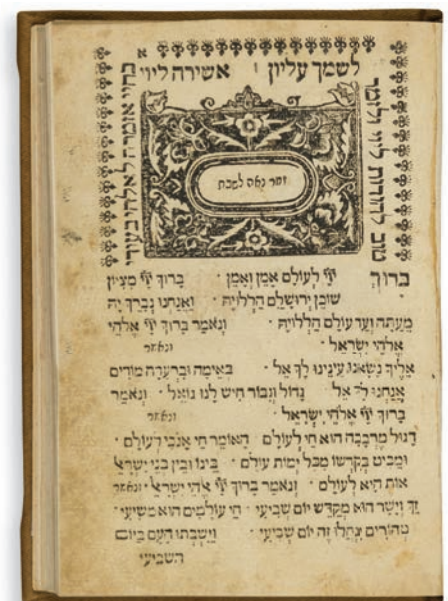 א
אשירה לייי
לשמך עליון
טוב להודות לייי ולזמר
בחיי אזמרה לאלהי בעודי
זמר נאה לשבת
בָּרוּךְ יְיָ לְעוֹלָם אָמֵן וְאָמֵן · בָּרוּךְ יְיָ מִצִּיּוֹן
שׁוֹכֵן יְרוּשָׁלַםִ הַלְלוּיָהּ · וַאֲנַחְנוּ נְבָרֵךְ יָהּ
מֵעַתָּה וְעַד עוֹלָם הַלְלוּיָהּ · וְנֹאמַר בָּרוּךְ יְיָ אֱלֹהֵי
אֱלֹהֵי יִשְׂרָאֵל · ונאמר
אֵלֶיךָ נָשָׂאנוּ עֵינֵינוּ לְךָ אֵל · בְּאֵימָה וּבִרְעָדָה מוֹדִים
אֲנַחְנוּ לְךָ אֵל · גָּדוֹל וְגִבּוֹר חִישׁ לָנוּ גוֹאֵל · וְנֹאמַר
בָּרוּךְ יְיָ אֱלֹהֵי יִשְׂרָאֵל · ונאמר
דָּגוּל מֶרְכָּבָה הוּא חַי לְעוֹלָם · הָאוֹמֵר חַי אָנֹכִי לְעוֹלָם ·
וּמַבִּיט בְּקָדְשׁוֹ מִכָּל יְמוֹת עוֹלָם · בֵּינוֹ וּבֵין בְּנֵי יִשְׂרָאֵל
אוֹת הִיא לְעוֹלָם · וְנֹאמַר בָּרוּךְ יְיָ אֱלֹהֵי יִשְׂרָאֵל · ונאמר
זַךְ וְיָשָׁר הוּא מְקַדֵּשׁ יוֹם שְׁבִיעִי · חֵי עוֹלָמִים הוּא מוֹשִׁיעִי ·
טְהוֹרִים יִנְחֲלוּ זֶה יוֹם שְׁבִיעִי · וַיִּשְׁבְּתוּ הָעָם בַּיּוֹם
השביעי